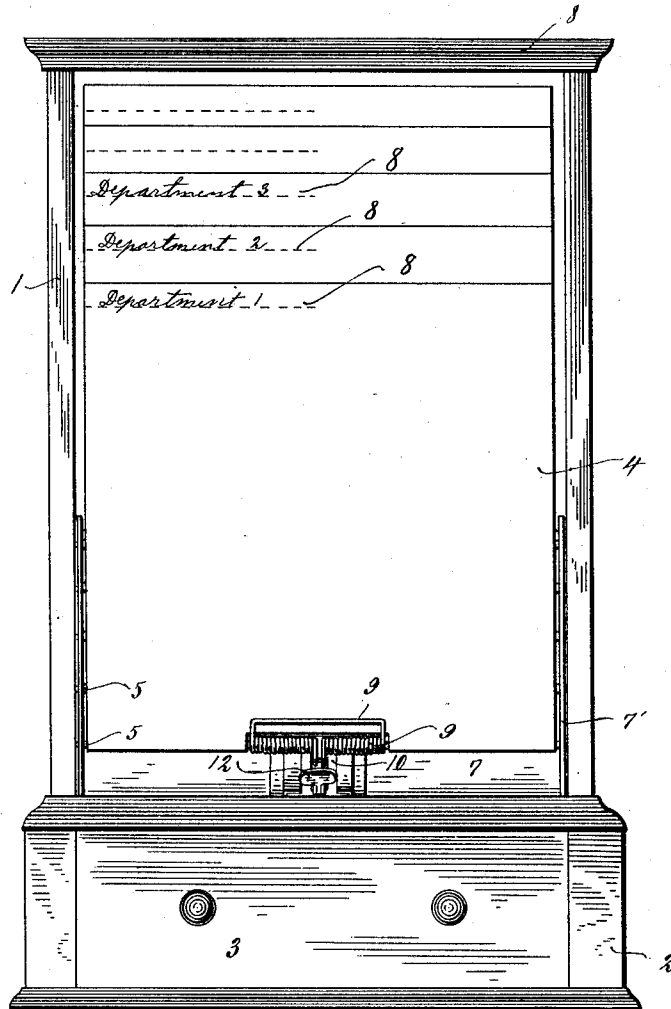 8
Department 3 8
Department 2 8
1 Department 1 8
4
5 9 7'
5 9
12 10 7
3 2